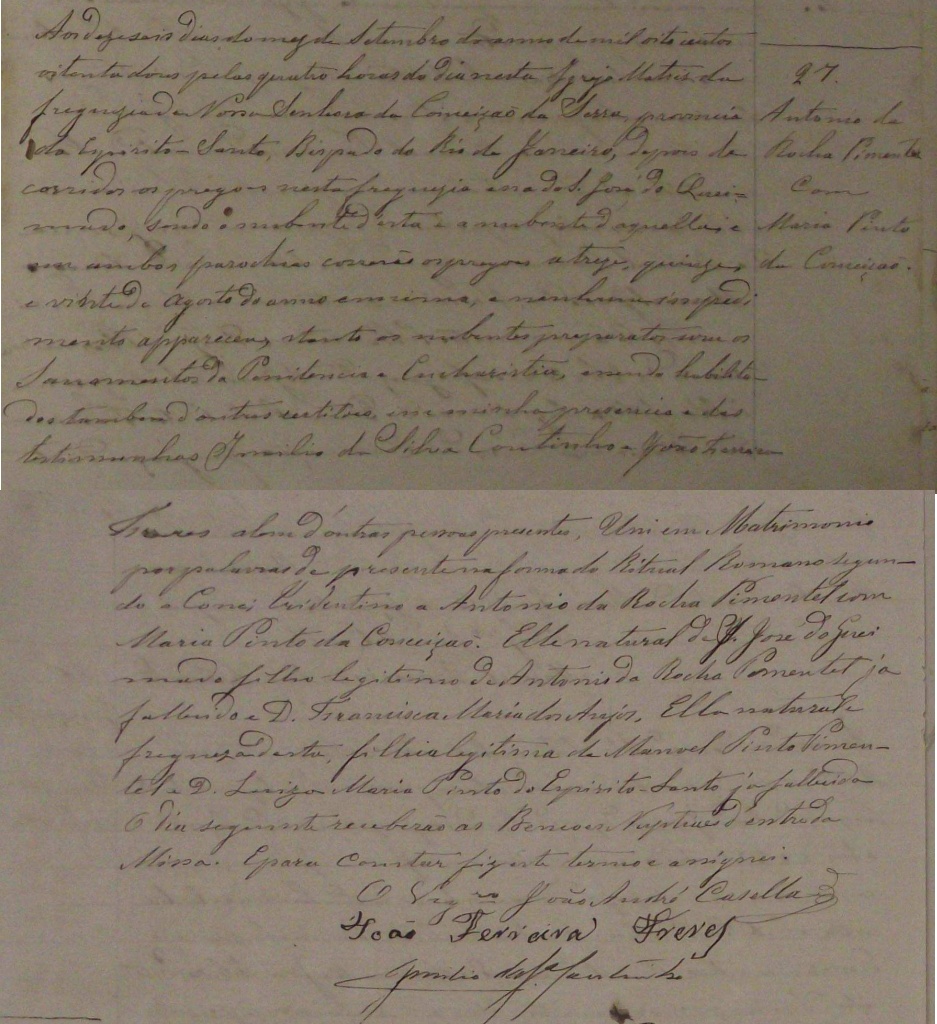 Aos dezeseis dias do mez de Setembro do anno de mil oito centos
oitenta dous pelas quatro horas do dia nesta Igreja Matris da
freguezia de Nossa Senhora da Conceição da Serra, provincia
do Espirito-Santo, Bispado do Rio de Janeiro, depois de
corridos os pregoes nesta freguezia e na do S. José do Quei=
mado, sendo o nubente d'esta e a nubente d'aquella, e
em ambas parochias correrão os pregoes a treze, quinze,
e vinte de Agosto do anno em cima, e nenhum impedi
mento appareceu, stante os nubentes preparatos com os
Sacramentos da Penitencia e Eucharistia, e sendo habilita-
dos tambem d'outras certitoes, em minha presencia e das
testimunhas Imilio da Silva Coutinho e João Ferreira
27.
Antonio da
Rocha Pimentel
Com
Maria Pinto
da Conceição.
Freres alem d'outras pessoas presentes, Uni em Matrimonio
por palavras de presente na forma do Ritual Romano segun-
do o Conci Tridentino a Antonio da Rocha Pimentel com
Maria Pinto da Conceição. Elle natural de S. José do Quei
mado filho legitimo de Antonio da Rocha Pimentel já
fallecido e D. Francisca Maria dos Anjos. Ella natural e
fregueza d'esta, filha legitima de Manoel Pinto Pimen-
tel e D. Luiza Maria Pinto do Espirito-Santo já fallecida
O dia seguinte receberão as Bencoes Nuptiaes d'entro da
Missa. E para constar fiz este termo e assignei.
O Vigro João André Casella
João Ferreira Freres
Imilio da Sa Coutinho